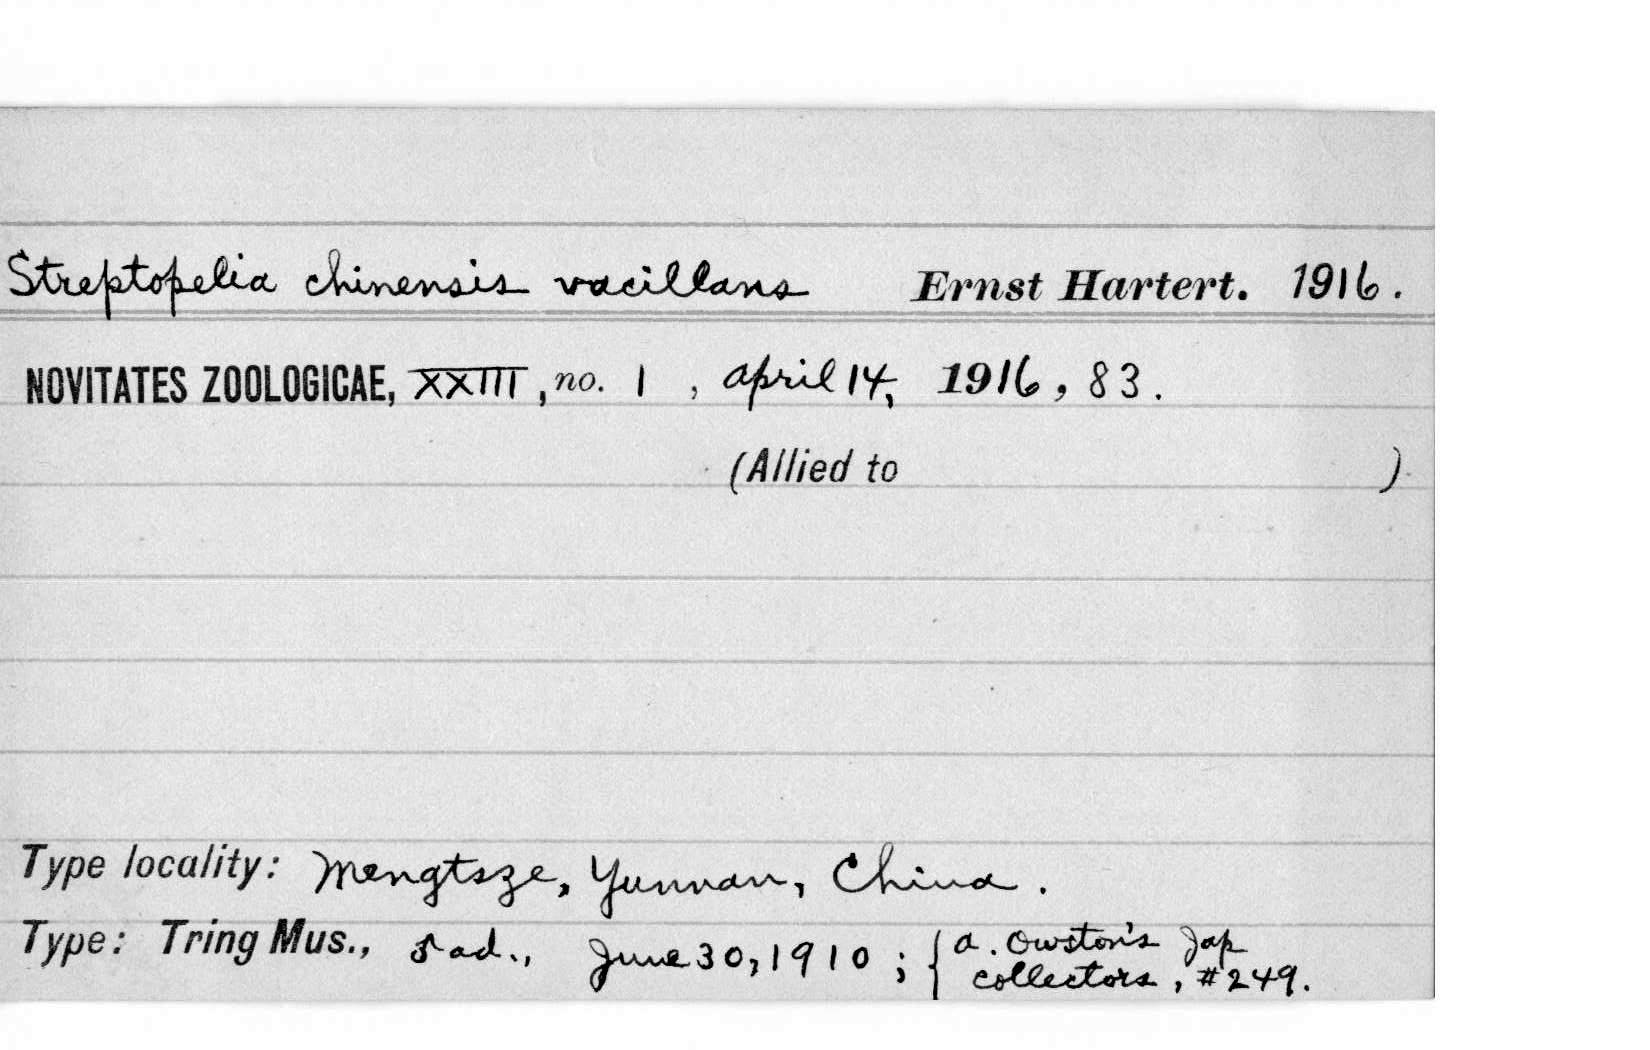 Streptopelia chinensis vacillans Ernst Hartert. 1916.
NOVITATES ZOOLOGICAE, XXIII, no. 1, April 14, 1916, 83.
(Allied to )
Type locality: Mengtsze, Yunnan, China.
Type: Tring Mus., ♂ ad., June 30, 1910; { A. Owston's Jap
collectors, #249.